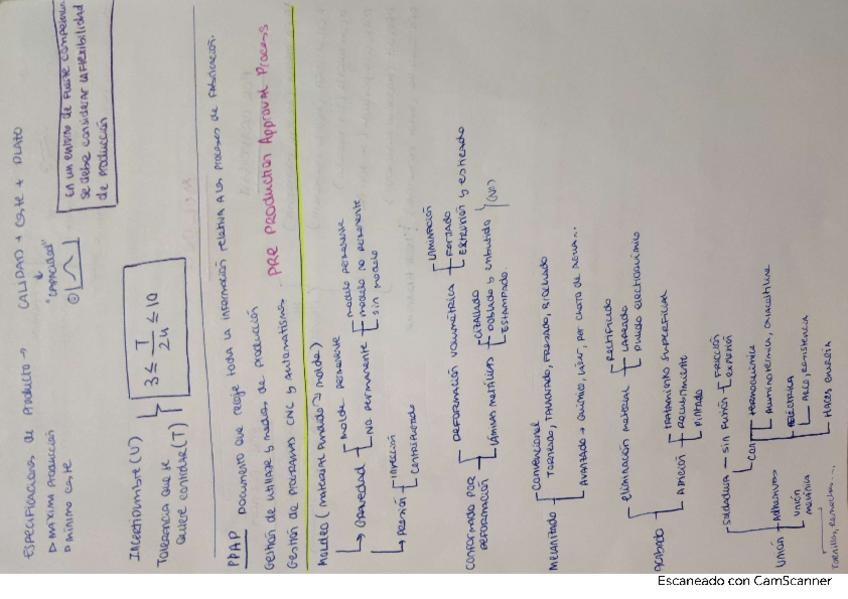 ESPECIFICACIONES DE PRODUCTO → CALIDAD + COSTE + PLAZO
▷ MÁXIMA PRODUCCIÓN
▷ MÍNIMO COSTE
"CAPACIDAD"
En un entorno de fuerte competencia
se debe considerar la flexibilidad
de producción
INCERTIDUMBRE (U)
TOLERANCIA que se
quiere controlar (T)
3 ≤ T/2U ≤ 10
PPAP DOCUMENTO que recoge toda la información relativa a los procesos de fabricación.
Gestión de utillajes y medios de producción
Gestión de programas CNC y automatismos
PRE PRODUCTION APPROVAL PROCESS
MOLDEO (material fundido → molde)
GRAVEDAD
Molde permanente
No permanente
modelo permanente
modelo no permanente
sin modelo
Presión
Inyección
Centrifugado
CONFORMADO POR
DEFORMACIÓN
DEFORMACIÓN VOLUMÉTRICA
LAMINACIÓN
FORJADO
EXTRUSIÓN y estirado
Láminas metálicas
CIZALLADO
Doblado y embutido
ESTAMPADO
MECANIZADO
CONVENCIONAL
TORNEADO, TALADRADO, FRESADO, BROCHADO
AVANZADO → químico, láser, por chorro de agua...
ACABADO
eliminación material
RECTIFICADO
LAPEADO
Pulido electroquímico
ADICIÓN
TRATAMIENTO SUPERFICIAL
RECUBRIMIENTO
PINTADO
UNIÓN
Soldadura
sin fusión
FRICCIÓN
explosión
Con
termoquímica
Aluminotermica, oxiacetilene
ELÉCTRICA
Arco, resistencia
Haces energía
Adhesivos
Unión
mecánica
Tornillos, remaches...,
Escaneado con CamScanner